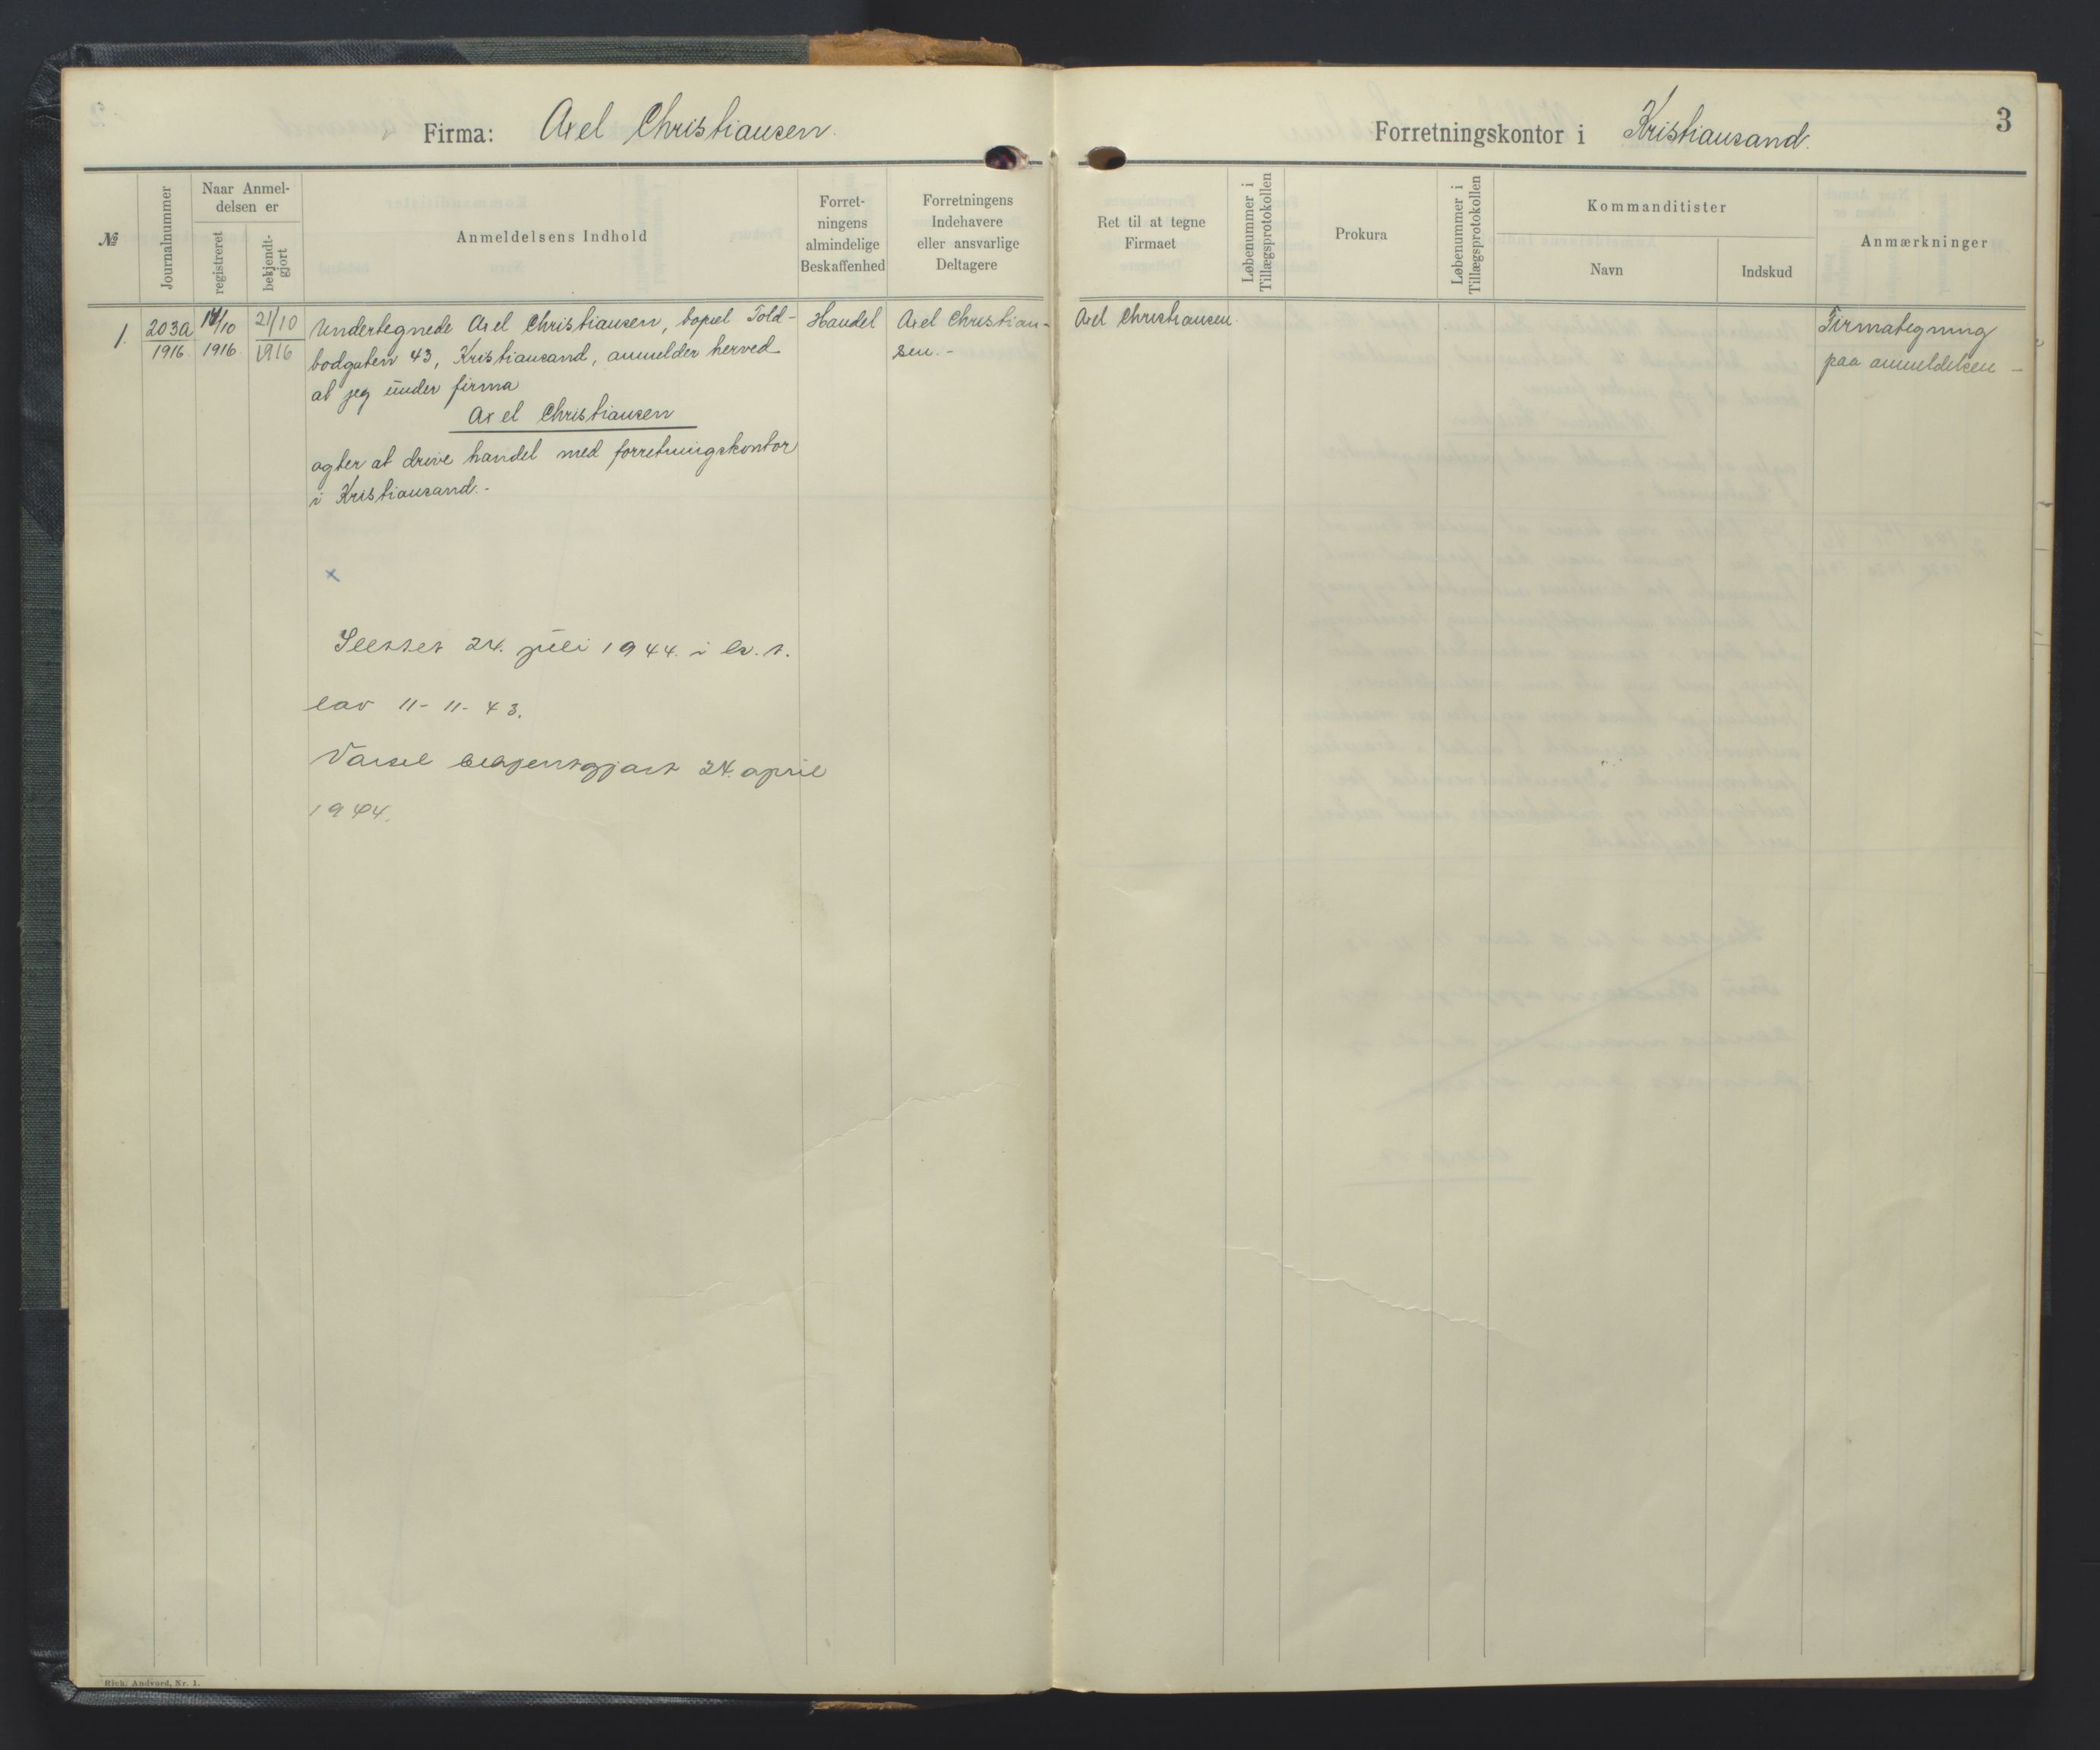 Firma: Axel Christiansen.
Forretningskontor i Kristiansand.
3
№
Journalnummer
Naar Anmel-
delsen er
registreret
bekjendt-
gjort
Anmeldelsens Indhold
Forret-
ningens
almindelige
Beskaffenhed
Forretningens
Indehavere
eller ansvarlige
Deltagere
Ret til at tegne
Firmaet
Løbenummer i
Tillægsprotokollen
Prokura
Løbenummer i
Tillægsprotokollen
Kommanditister
Navn
Indskud
Anmærkninger
1.
203a
1916
/10
1916
21/10
1916
Undertegnede Axel Christiansen, bopæl Told-
bodgaten 43, Kristiansand, anmelder herved
at jeg under firma
Axel Christiansen
agter at drive handel med forretningskontor
i Kristiansand.-
Handel
Axel Christian-
sen.-
Axel Christiansen.
Firmategning
paa anmeldelsen -
x
Slettet 24. juli 1944. i h.t.
lov 11-11-43.
Varsel bekjentgjort 24. april
1944.
Rich. Andvord, Nr. 1.